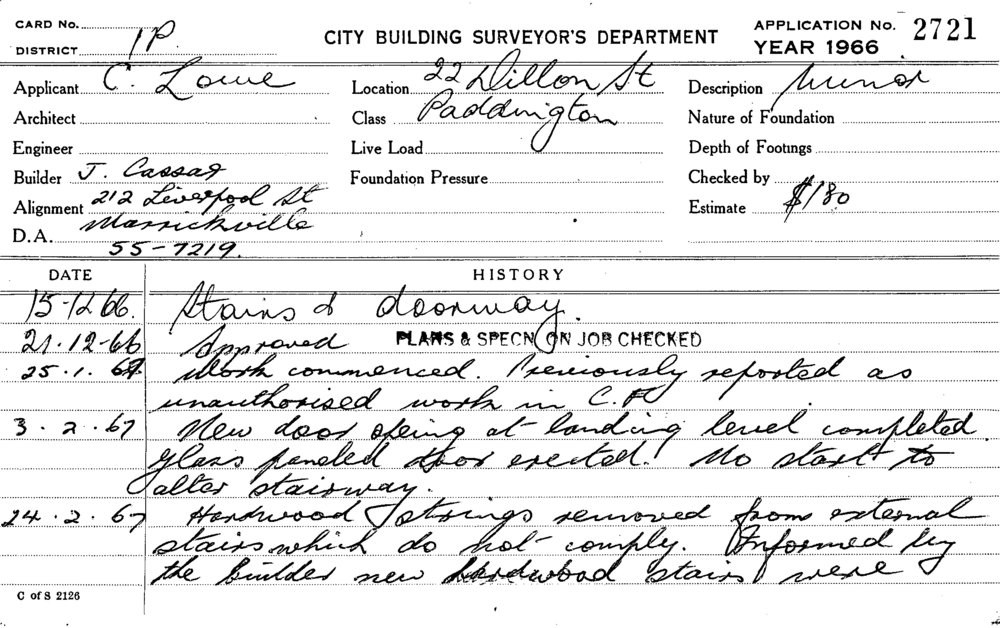 CARD No.
DISTRICT 1P
CITY BUILDING SURVEYOR'S DEPARTMENT
APPLICATION No. 2721
YEAR 1966
Applicant C. Lowe
Location 22 Dillon St
Description Minor
Architect
Class Paddington
Nature of Foundation
Engineer
Live Load
Depth of Footings
Builder J. Cassar
Foundation Pressure
Checked by
Alignment 212 Liverpool St
Estimate $180
Marrickville
D.A.
55-7219.
DATE HISTORY
15-12 66. Stairs & doorway.
21.12-66 Approved PLANS & SPECN ON JOB CHECKED
25.1.67 Work commenced. Previously reported as
unauthorised work in C.F.
3.2.67 New door opeing at landing level completed.
Glass paneled door erected. No start to
alter stairway.
24.2.67 Hardwood strings removed from external
stairs which do not comply. Informed by
the builder new hardwood stairs were
C of S 2126